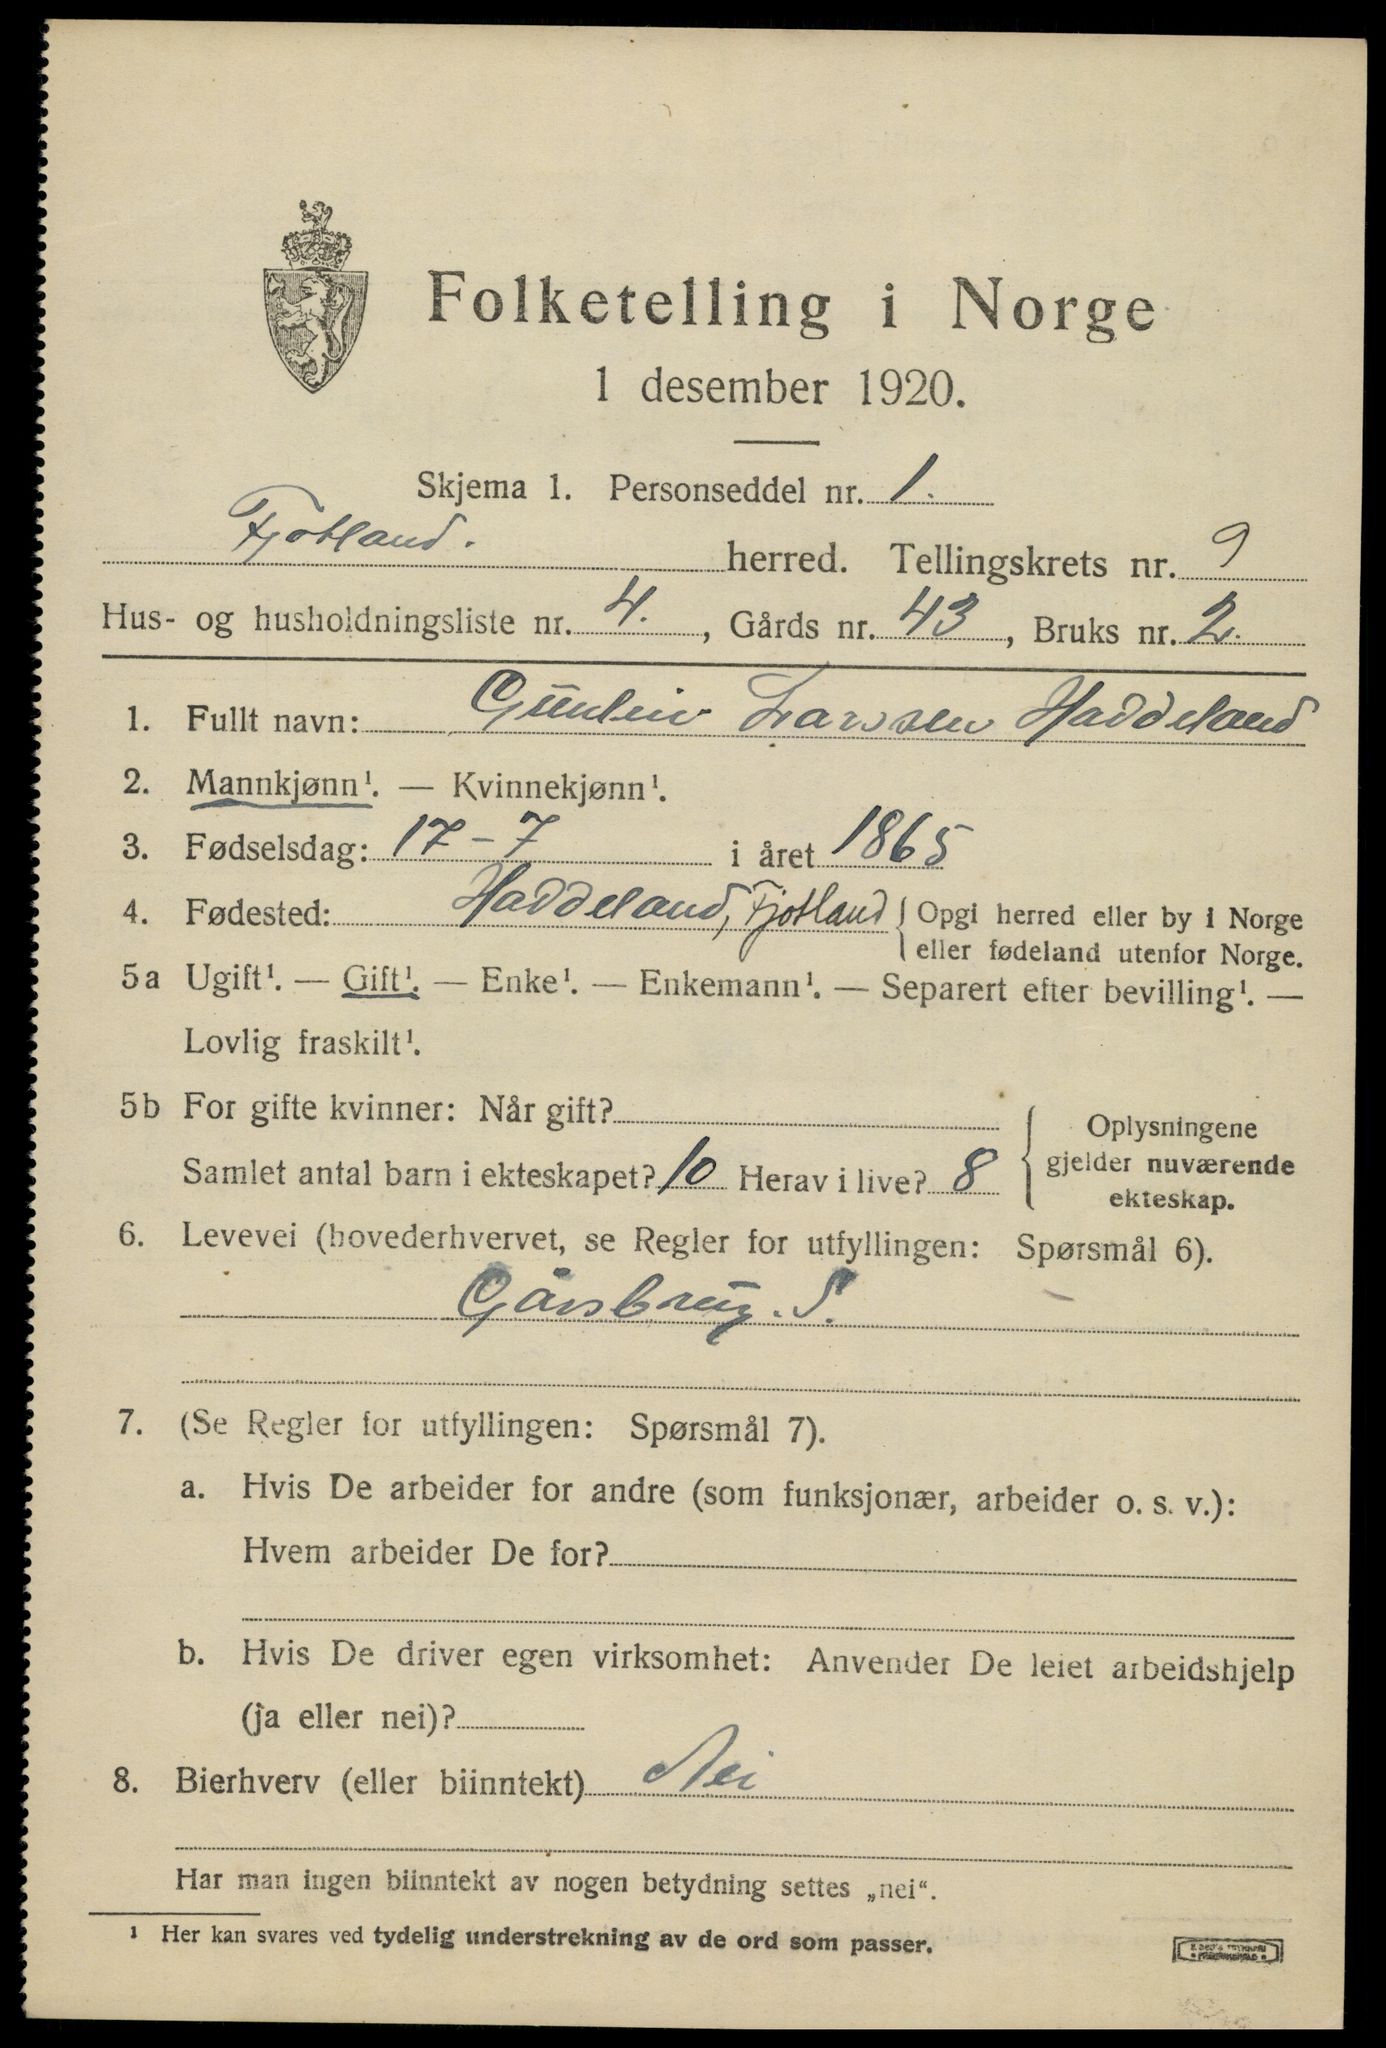 Folketelling i Norge
1 desember 1920.
Skjema 1. Personseddel nr. 1.
Fjotland. herred. Tellingskrets nr. 9
Hus- og husholdningsliste nr. 4., Gårds nr. 43, Bruks nr. 2.
1. Fullt navn: Gunleiv Larssen Haddeland
2. Mannkjønn¹. — Kvinnekjønn¹.
3. Fødselsdag: 17-7 i året 1865
4. Fødested: Haddeland, Fjotland { Opgi herred eller by i Norge
eller fødeland utenfor Norge.
5a Ugift¹. — Gift¹. — Enke¹. — Enkemann¹. — Separert efter bevilling¹. —
Lovlig fraskilt¹.
5b For gifte kvinner: Når gift?
Samlet antal barn i ekteskapet? 10 Herav i live? 8
{ Oplysningene
gjelder nuværende
ekteskap.
6. Levevei (hovederhvervet, se Regler for utfyllingen: Spørsmål 6).
Gårsbrug. S.
7. (Se Regler for utfyllingen: Spørsmål 7).
a. Hvis De arbeider for andre (som funksjonær, arbeider o. s. v.):
Hvem arbeider De for?
b. Hvis De driver egen virksomhet: Anvender De leiet arbeidshjelp
(ja eller nei)?
8. Bierhverv (eller biinntekt) Nei
Har man ingen biinntekt av nogen betydning settes „nei“.
¹ Her kan svares ved tydelig understrekning av de ord som passer.